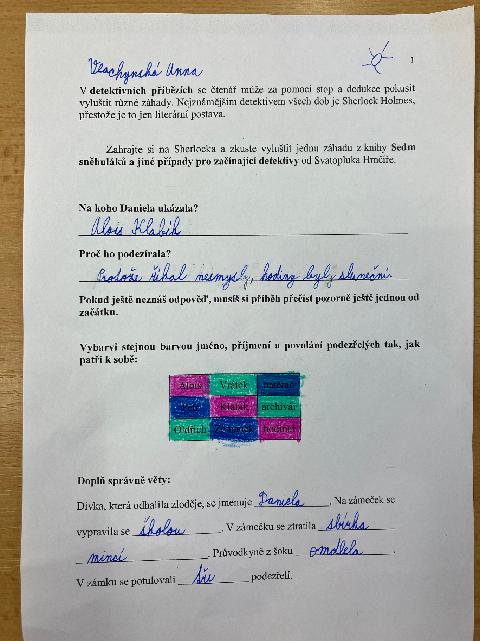 Vlachynská Anna
1
V detektivních příbězích se čtenář může za pomoci stop a dedukce pokusit
vyluštit různé záhady. Nejznámějším detektivem všech dob je Sherlock Holmes,
přestože je to jen literární postava.
Zahrajte si na Sherlocka a zkuste vyluštit jednu záhadu z knihy Sedm
sněhuláků a jiné případy pro začínající detektivy od Svatopluka Hrnčíře.
Na koho Daniela ukázala?
Alois Klabík
Proč ho podezírala?
Protože říkal nesmysly, hodiny byly sluneční.
Pokud ještě neznáš odpověď, musíš si příběh přečíst pozorně ještě jednou od
začátku.
Vybarvi stejnou barvou jméno, příjmení a povolání podezřelých tak, jak
patří k sobě:
Alois Vrátek
Petr Klabík archivář
Oldřich hodinář
Doplň správně věty:
Dívka, která odhalila zloděje, se jmenuje Daniela. Na zámeček se
vypravila se školou. V zámečku se ztratila sbírka
mincí. Průvodkyně z šoku omdlela.
V zámku se potulovali tři podezřelí.